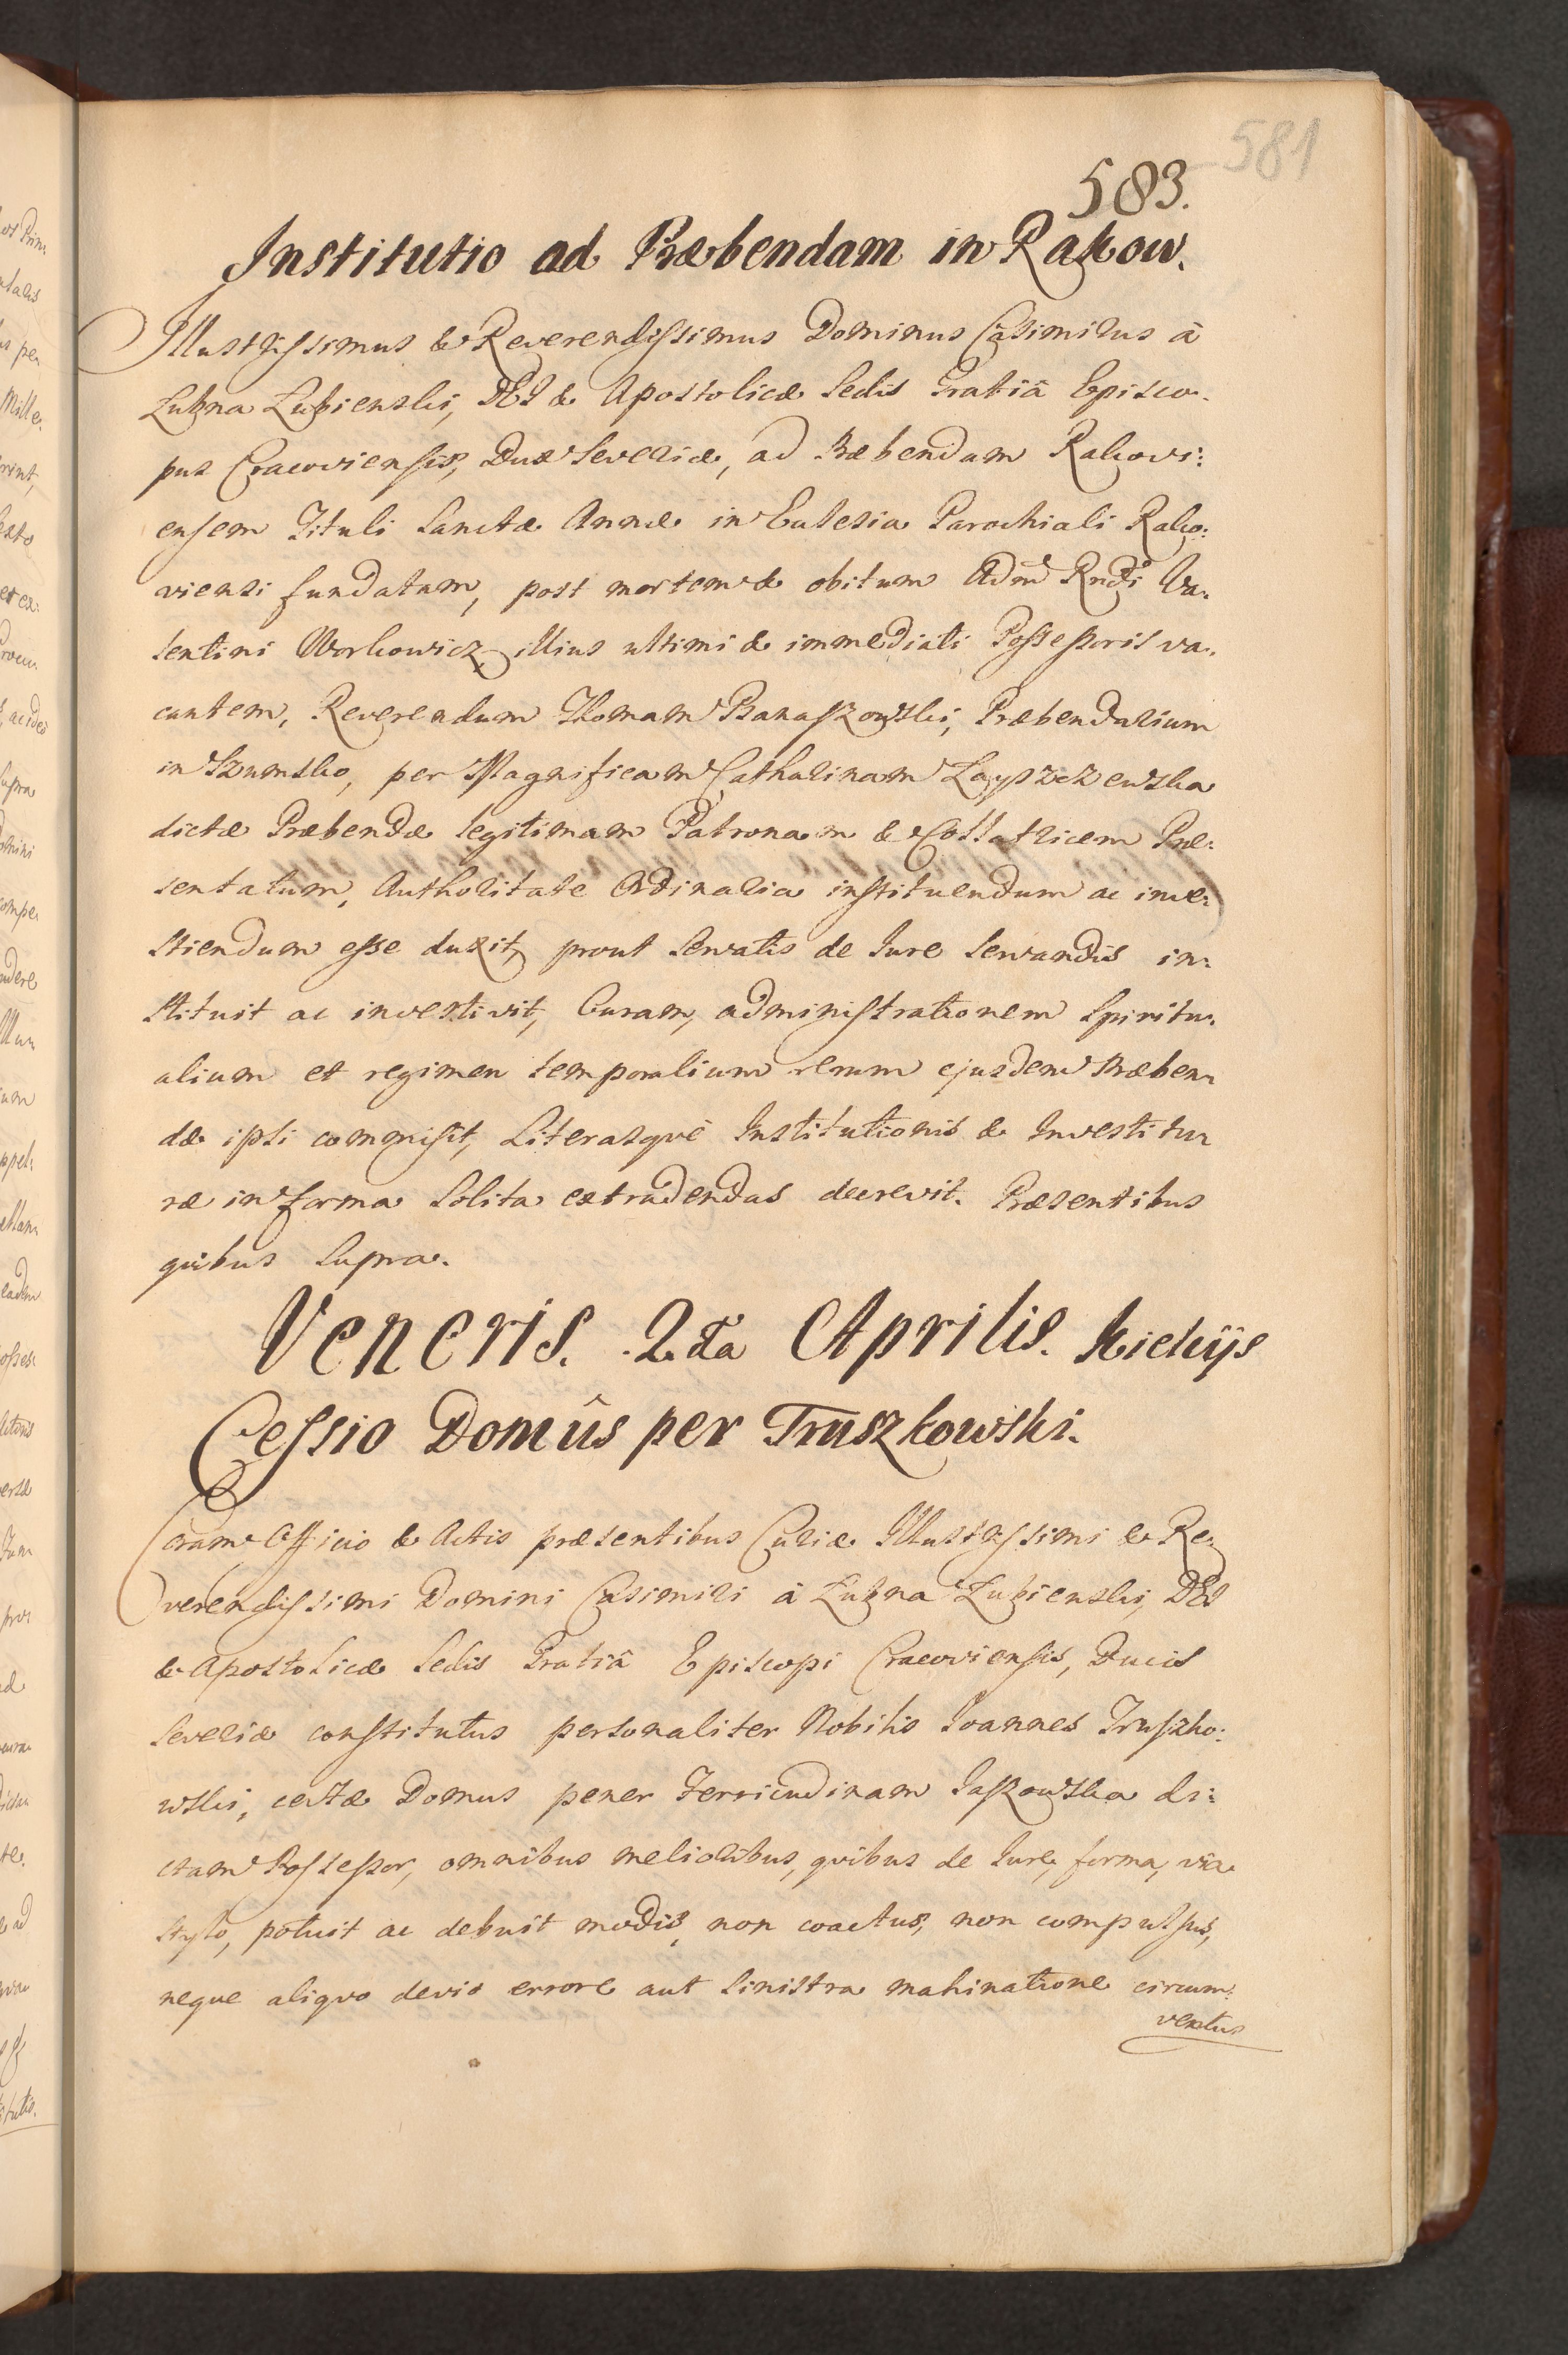 581
583.
Institutio ad Præbendam in Rakow.
Illustrissimus & Reverendissimus Dominus Casimirus à
Lubna Lubienski, DEI & Apostolicæ Sedis Gratiâ Episco-
pus Cracoviensis, Dux Severiæ, ad Præbendam Rakovi:
ensem Tituli Sanctæ Annæ in Eclesia Parochiali Rako:
viensi fundatam, post mortem & obitum Adm Rndi Va-
lentini Workowicz illius ultimi & immediati Possessoris va-
cantem, Reverendum Thomam Banaszowski, Præbendarium
in Szumsko, per Magnificam Catharinam Łayszczewska
dictæ Præbendæ legitimam Patronam & Collatricem Præ:
sentatum, Authoritate Ordinaria instituendum ac inve:
stiendum esse duxit, prout servatis de Jure servandis in:
stituit ac investivit, Curam, administrationem Spiritu-
alium et regimen temporalium rerum ejusdem Præben-
dæ ipsi commisit, Literasquè Institutionis & Investitu-
ræ in forma solita extradendas decrevit. Præsentibus
quibus supra.
Veneris. 2da Aprilis. Kielcijs
Cessio Domûs per Truszkowski.
Coram Officio & Actis præsentibus Curiæ Illustrissimi & Re-
verendissimi Domini Casimiri à Lubna Lubienski, DEI
& Apostolicæ Sedis Gratiâ Episcopi Cracoviensis, Ducis
Severiæ constitutus personaliter Nobilis Joannes Truszko:
wski, certæ Domus penes Ferricudinam Jaszowska di:
ctam Possessor, omnibus melioribus, quibus de Jure, forma, via
stylo, potuit ac debuit modis, non coactus, non compulsus,
neque aliquo devio errore aut sinistra mahinatione circum:
ventus